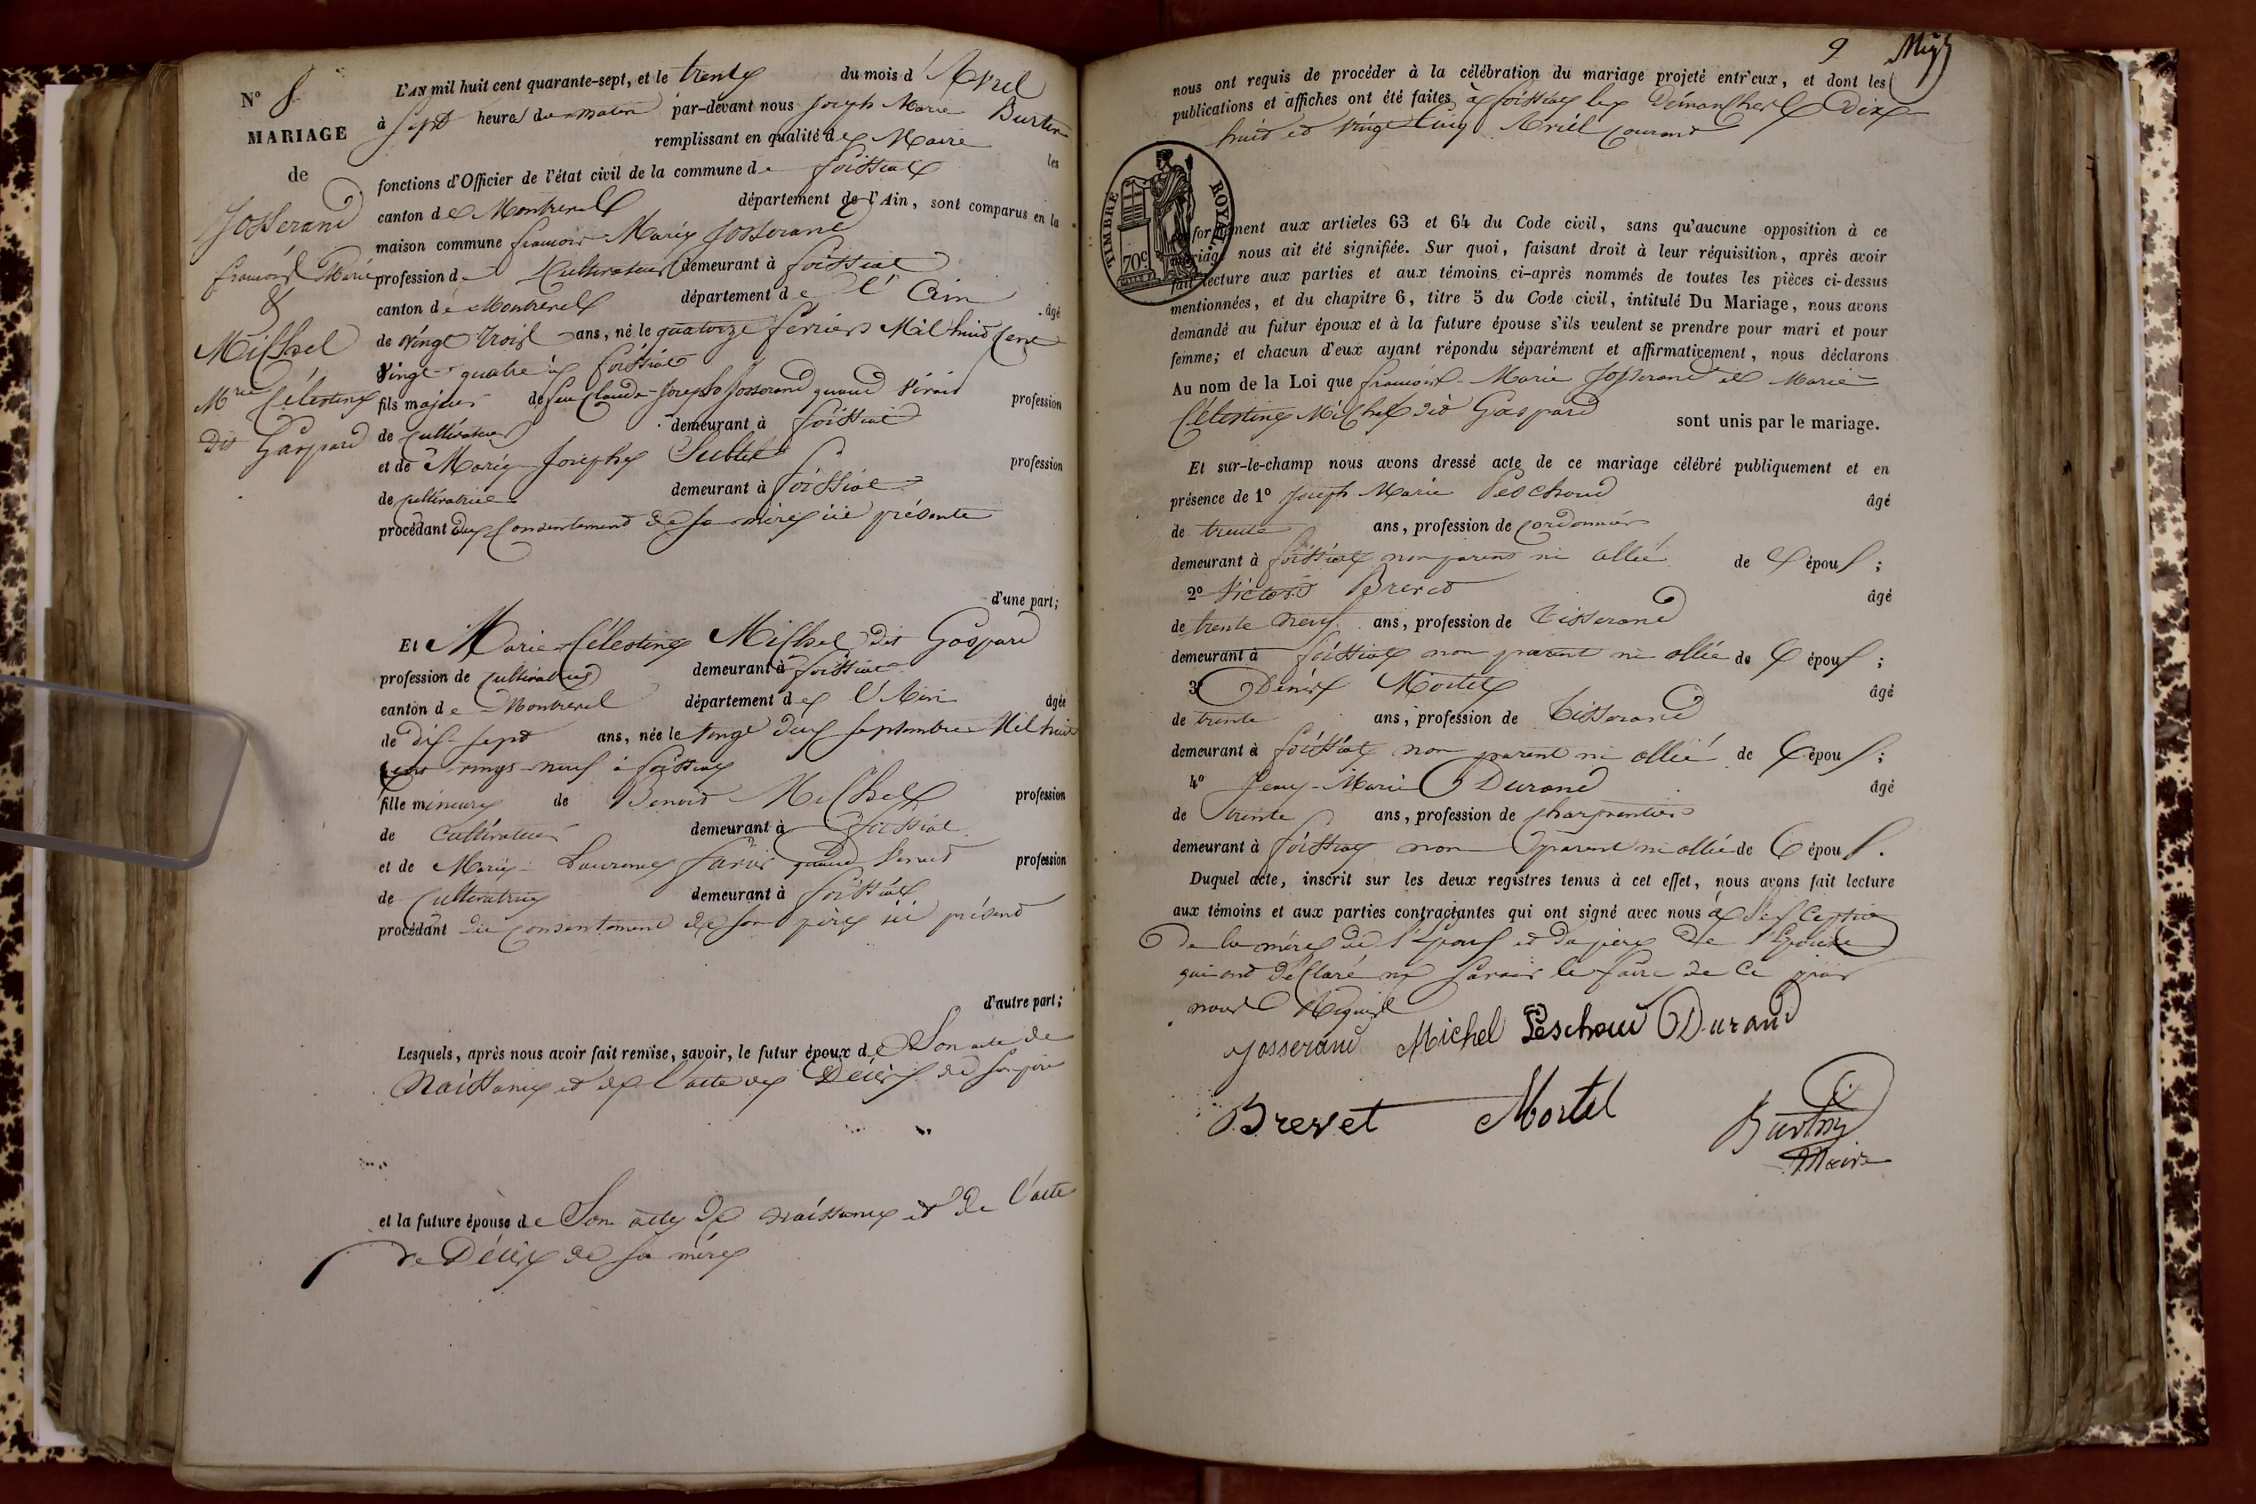 N° 8
MARIAGE
de
Josserand
françois Marie
&
Michel
Mrie Célestine
dit Gaspard
L'AN mil huit cent quarante-sept, et le trente du mois d'Avril
à sept heures du matin par-devant nous Joseph Marie Burtin
remplissant en qualité de Maire les
fonctions d'Officier de l'état civil de la commune de foissiat
canton de Montrevel département de l'Ain, sont comparus en la
maison commune françois Marie Josserand
profession de Cultivateur demeurant à foissiat
canton de Montrevel département de l'Ain âgé
de vingt trois ans, né le quatorze fevrier Mil huit Cent
vingt quatre à foissiat
fils majeur de feu Claude-Joseph Josserand quand vivait profession
de Cultivateur demeurant à foissiat
et de Marie Josephe Sublet profession
de cultivatrice demeurant à foissiat
procédant du Consentement de sa mère ici présente
d'une part;
Et Marie Célestine Michel dit Gaspard
profession de cultivateur demeurant à foissiat
canton de Montrevel département de l'Ain âgée
de dix-sept ans, née le vingt deux septembre Mil huit
Cent vingt-neuf à foissiat
fille mineure de Benoit Michel profession
de Cultivateur demeurant à foissiat
et de Marie Laurence favier quand vivait profession
de Cultivatrice demeurant à foissiat
procédant du consentement de son père ici présent
d'autre part;
Lesquels, après nous avoir fait remise, savoir, le futur époux de Son acte de
Naissance et de l'acte de Décès de son père
et la future épouse de Son acte de naissance et de l'acte
de Décès de sa mère
9
nous ont requis de procéder à la célébration du mariage projeté entr'eux, et dont les
publications et affiches ont été faites à foissiat les Dimanches Dix
huit et vingt cinq Avril Courant
TIMBRE ROYAL
70c
conformément aux articles 63 et 64 du Code civil, sans qu'aucune opposition à ce
mariage nous ait été signifiée. Sur quoi, faisant droit à leur réquisition, après avoir
fait lecture aux parties et aux témoins ci-après nommés de toutes les pièces ci-dessus
mentionnées, et du chapitre 6, titre 5 du Code civil, intitulé Du Mariage, nous avons
demandé au futur époux et à la future épouse s'ils veulent se prendre pour mari et pour
femme; et chacun d'eux ayant répondu séparément et affirmativement, nous déclarons
Au nom de la Loi que françois-Marie Josserand et Marie
Célestine Michel dit Gaspard sont unis par le mariage.
Et sur-le-champ nous avons dressé acte de ce mariage célébré publiquement et en
présence de 1° Joseph Marie Peschoud âgé
de trente ans, profession de Cordonnier
demeurant à foissiat non parent ni allié de l'époux;
2° Victor Brevet âgé
de trente neuf ans, profession de Tisserand
demeurant à foissiat non parent ni allié de l'époux;
3° Denis Mortel âgé
de trente ans, profession de Tisserand
demeurant à foissiat non parent ni allié de l'époux;
4° Jean-Marie Durand âgé
de trente ans, profession de charpentier
demeurant à foissiat non parent ni allié de l'époux.
Duquel acte, inscrit sur les deux registres tenus à cet effet, nous avons fait lecture
aux témoins et aux parties contractantes qui ont signé avec nous à l'exception
de la mère de l'Epoux et du père de l'Epouse
qui ont déclaré ne savoir le faire de ce par
nous Requis
Josserand Michel Peschoud Durand
Brevet Mortel
Burtin
Maire